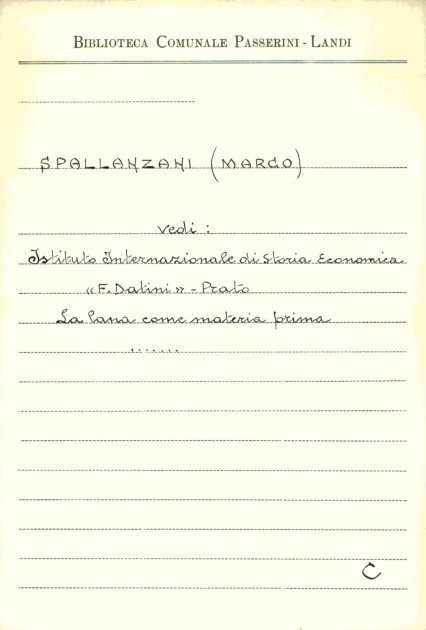 BIBLIOTECA COMUNALE PASSERINI-LANDI
SPALLANZANI (MARCO)
vedi :
Istituto Internazionale di Storia Economica
« F. Datini » - Prato
La lana come materia prima
.......
C